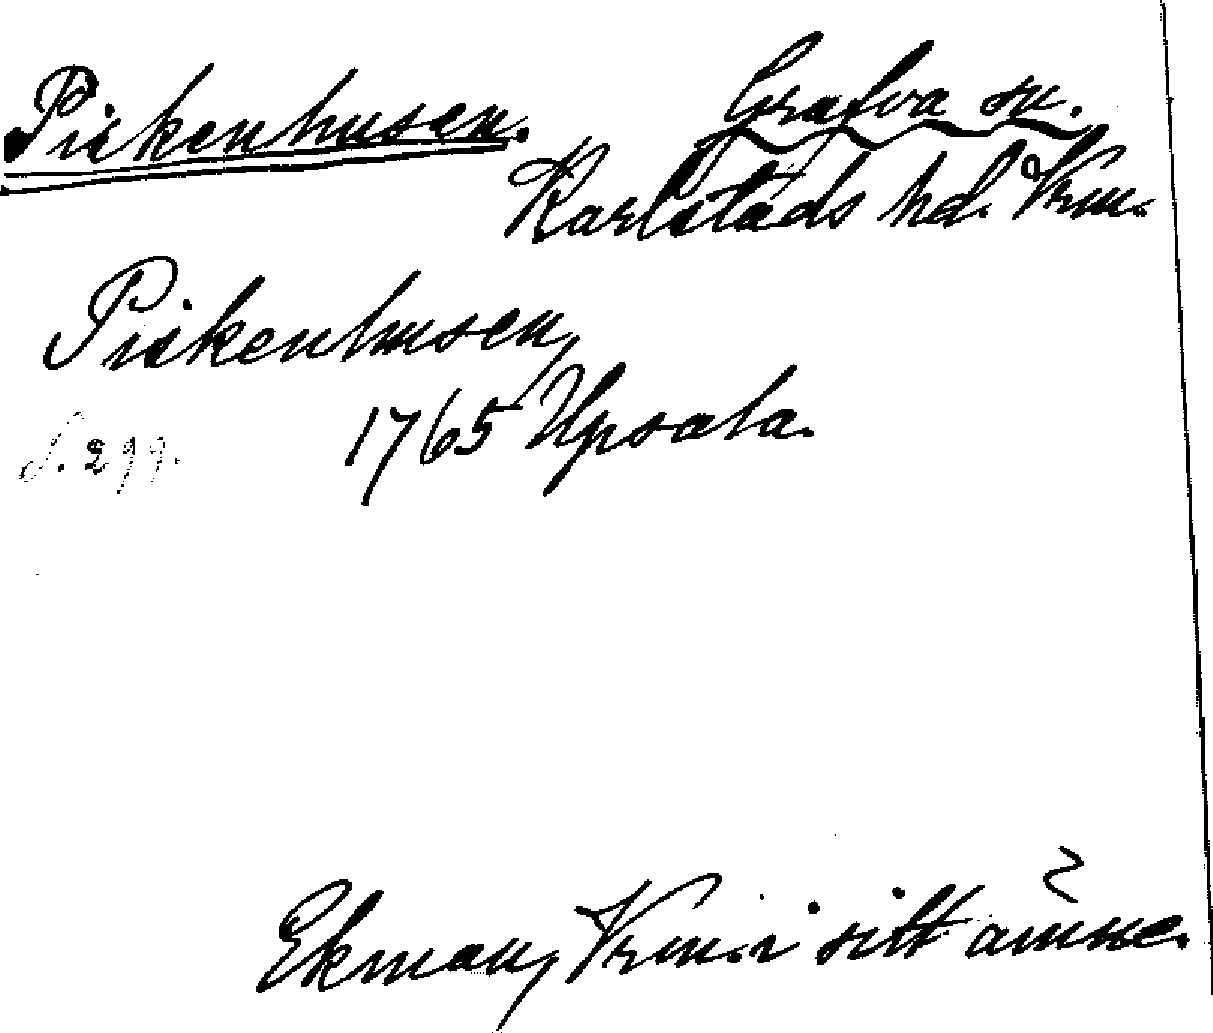 Piskenhusen.
Grafva sn.
Karlstads hd. Vrm.
Piskenhusen,
1765 Upsala.
S. 299.
Ekman, Vrm. i sitt ämne.